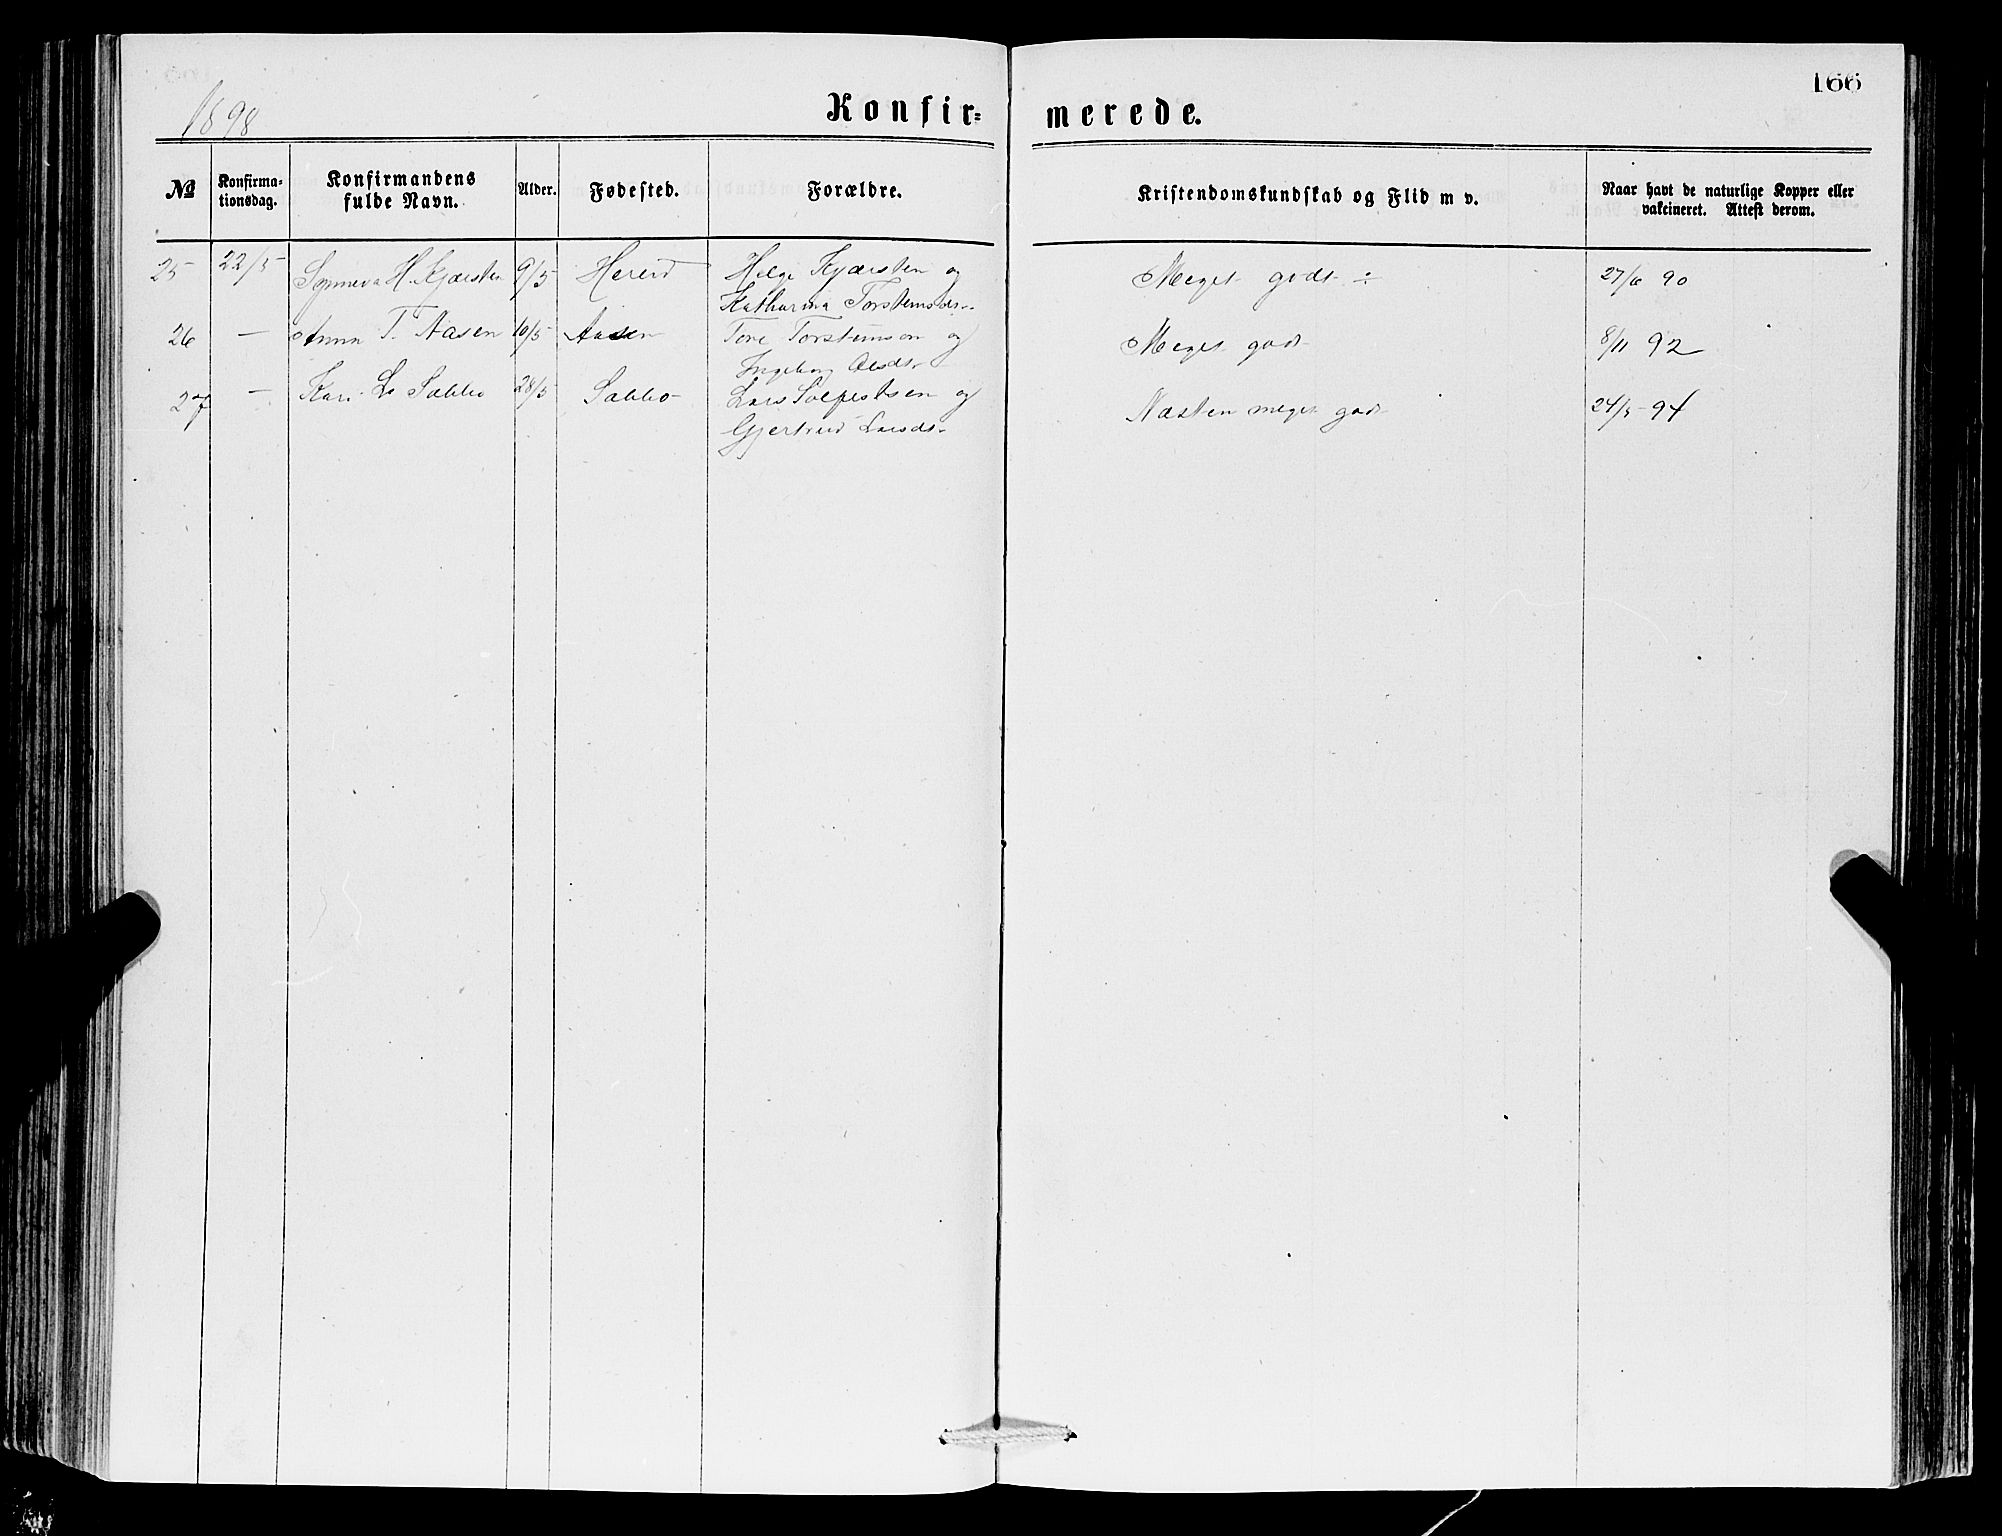 166
1898
Konfir=
merede.
№
Konfirma=
tionsdag.
Konfirmandens
fulde Navn.
Alder.
Fødested.
Forældre.
Kristendomskundskab og Flid m v.
Naar havt de naturlige Kopper eller
vakcineret. Attest derom.
25 22/5 Synneva H. Kjærsten 9/5 Hereid Helge Kjærsten og Meget godt ÷ 27/6 90
Katharina Torsteinsdr.
26 — Anna T. Aasen 10/5 Aasen Tore Torsteinson og Meget godt 8/11 92
Ingeborg Olsdtr
27 — Kari L. Sæbbø 28/5 Sæbbø Lars Solfestsen og Næsten meget godt 24/5 94
Gjertrud Larsdtr